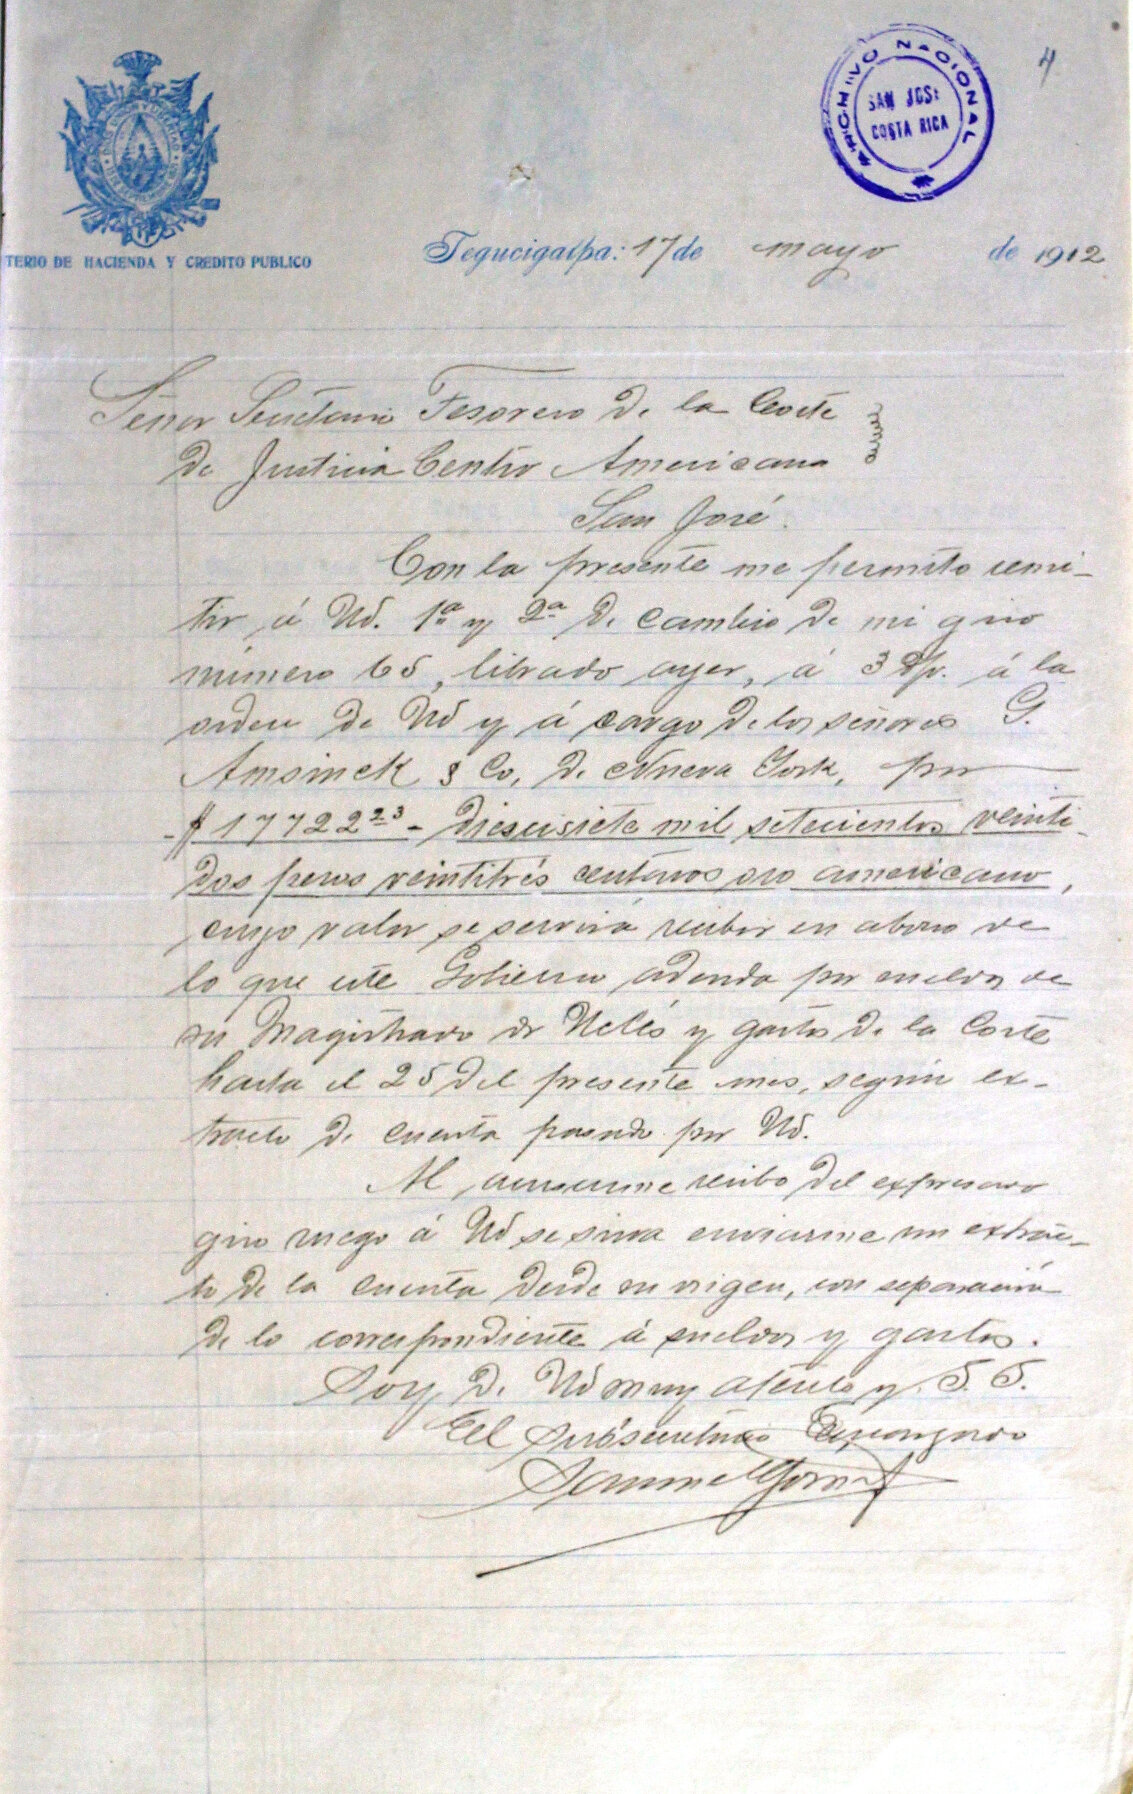 4
ARCHIVO NACIONAL
SAN JOSE
COSTA RICA
TERIO DE HACIENDA Y CREDITO PUBLICO
Tegucigalpa: 17 de mayo de 1912
Señor Secretario Tesorero de la Corte
de Justicia Centro Americana
San José.
Con la presente me permito remi-
tir á Ud. 1ª y 2ª de cambio de mi giro
número 65, librado ayer, á 3 d/v. á la
orden de Ud y á cargo de los señores G.
Amsinck & Co, de Nueva York, por
-$ 17722 23 - diesisiete mil setecientos veinti-
dos pesos veintitrés centavos oro americano,
cuyo valor se servirá recibir en abono de
lo que este Gobierno adeuda por sueldos de
su Magistrado dr Uclés y gastos de la Corte
hasta el 25 del presente mes, según ex-
tracto de cuenta pasado por Ud.
Al acusarme recibo del expresado
giro ruego á Ud se sirva enviarme un extrac-
to de la cuenta desde su origen, con separación
de lo correspondiente á sueldos y gastos.
Soy de Ud muy atento y S. S.
El Subsecretario Encargado
Samuel